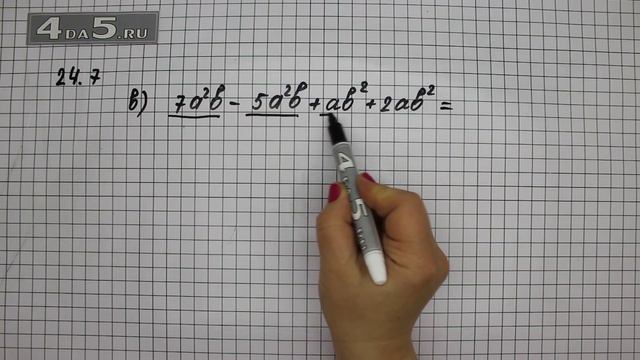 4DA5.RU
24.7
в) 7a²b - 5a²b + ab² + 2ab² =
45